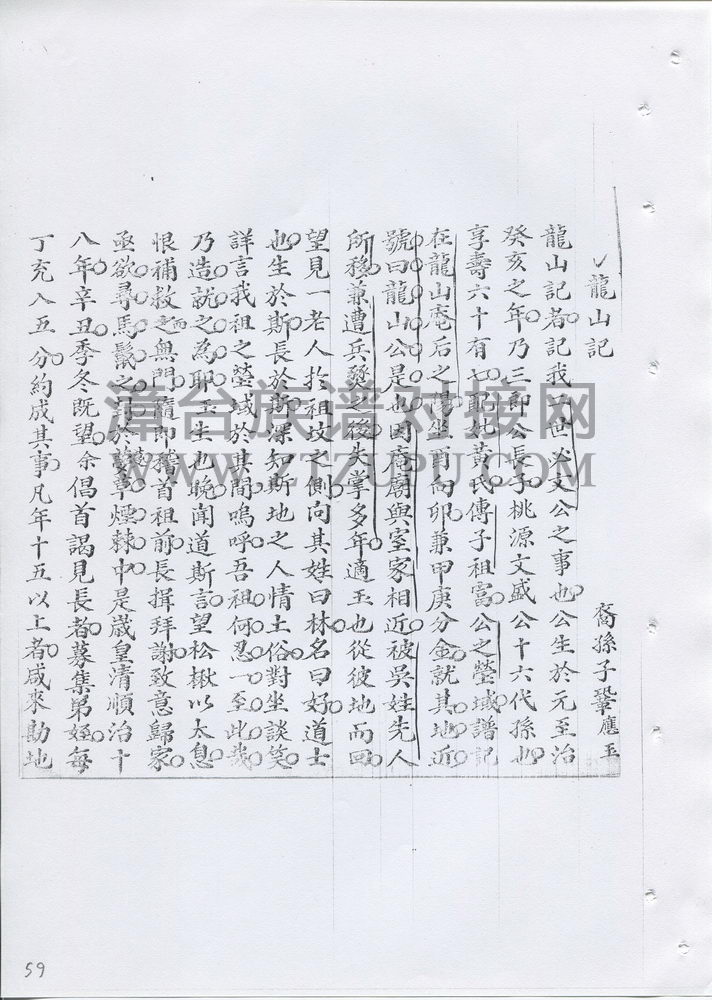 龍山記
裔孫子鞏應玉
龍山記者記我世文公之事也公生於元至治
癸亥之年乃三郎公長子桃源文盛公十六代孫也
享壽六十有七配妣黃氏傳子祖富公之塋域譜記
在龍山菴后之陽坐酉向卯兼甲庚分金就其地近
號曰龍山公是也因庵廟與室家相近被吳姓先人
所移兼遭兵燹之後失掌多年適玉也從彼地而回
望見一老人於祖坟之側向其姓曰林名曰好道士
也生於斯長於斯深知斯地之人情土俗對坐談笑
詳言我祖之塋域於其間嗚呼吾祖何忍一至此哉
乃造就之為耶玉生也晚聞道斯言望松楸以太息
恨補救之而無門隨即稽首祖前長揖拜謝致意歸家
亟欲尋馬鬣之封於蔓草煙棘中是歲皇清順治十
八年辛丑季冬既望余倡首謁見長者募集弟姪每
丁充入五分約成其事凡年十五以上者咸來勘地
漳台族谱对接网
WWW.ZTZUPU.COM
59